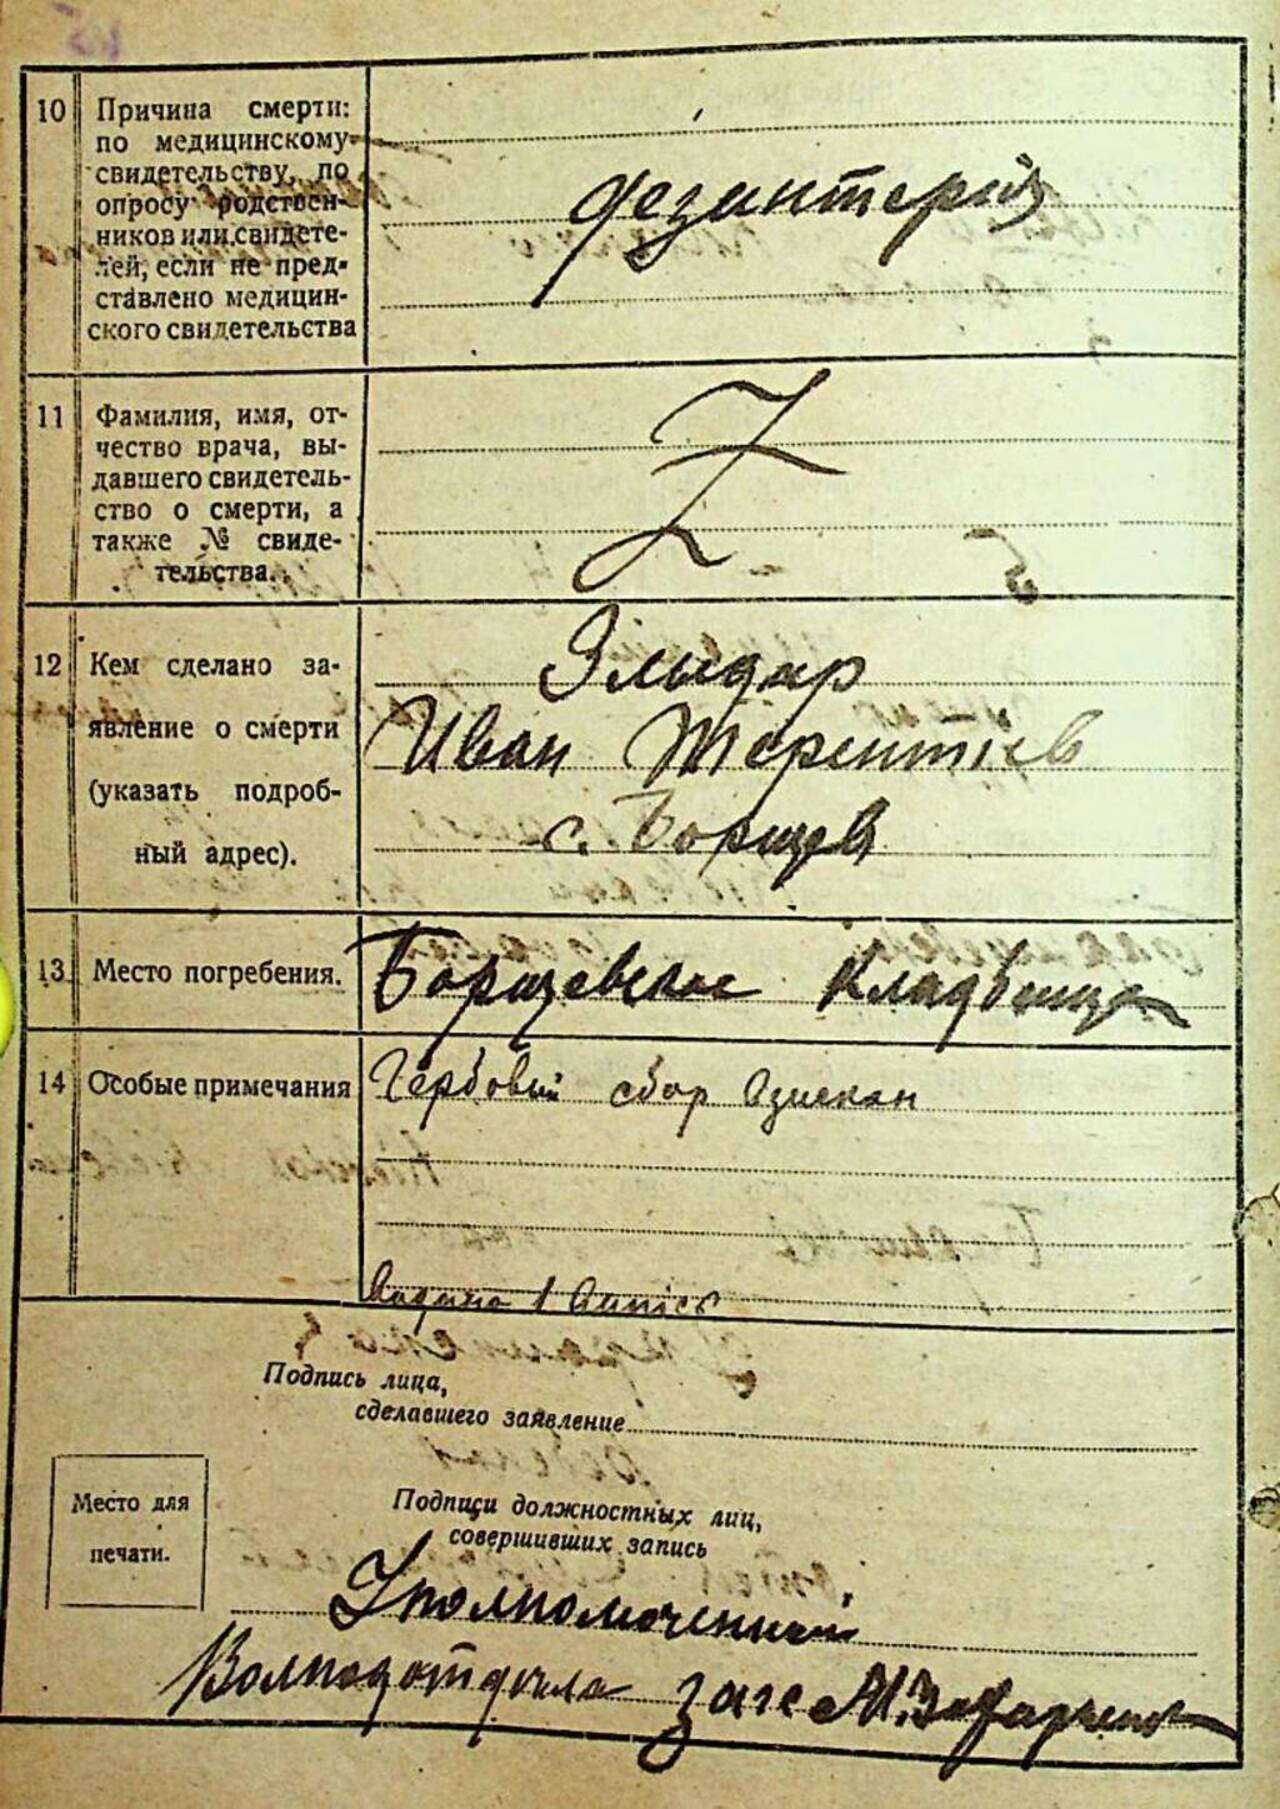 10
Причина смерти:
по медицинскому
свидетельству, по
опросу родствен-
ников или свидете-
лей, если не пред-
ставлено медицин-
ского свидетельства
дезинтерия
11
Фамилия, имя, от-
чество врача, вы-
давшего свидетель-
ство о смерти, а
также № свиде-
тельства.
Z
12
Кем сделано за-
явление о смерти
(указать подроб-
ный адрес).
Элыдар
Иван Терентіев
с. Борщев
13
Место погребения.
Борщевское Кладбище
14
Особые примечания
Гербовый сбор взискан
Подпись лица,
сделавшего заявление
Место для
печати.
Подписи должностных лиц,
совершивших запись
Уполномоченный
Волподотдела загс